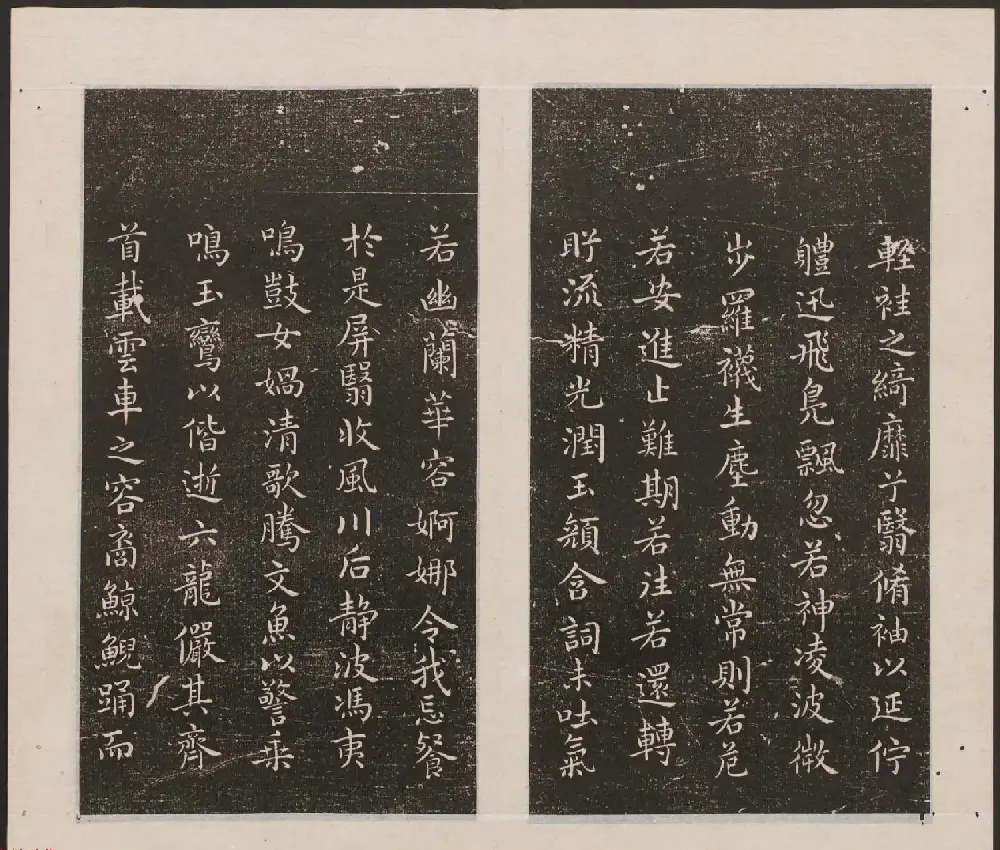 輊袿之綺靡兮翳脩袖以延佇
軆迅飛鳧飄忽若神凌波微
步羅襪生塵動無常則若危
若安進止難期若往若還轉
眄流精光潤玉顏含詞未吐氣
若幽蘭華容婀娜令我忘餐
於是屏翳收風川后静波馮夷
鳴鼓女媧清歌騰文魚以警乘
鳴玉鸞以偕逝六龍儼其齊
首載雲車之容裔鯨鯢踊而